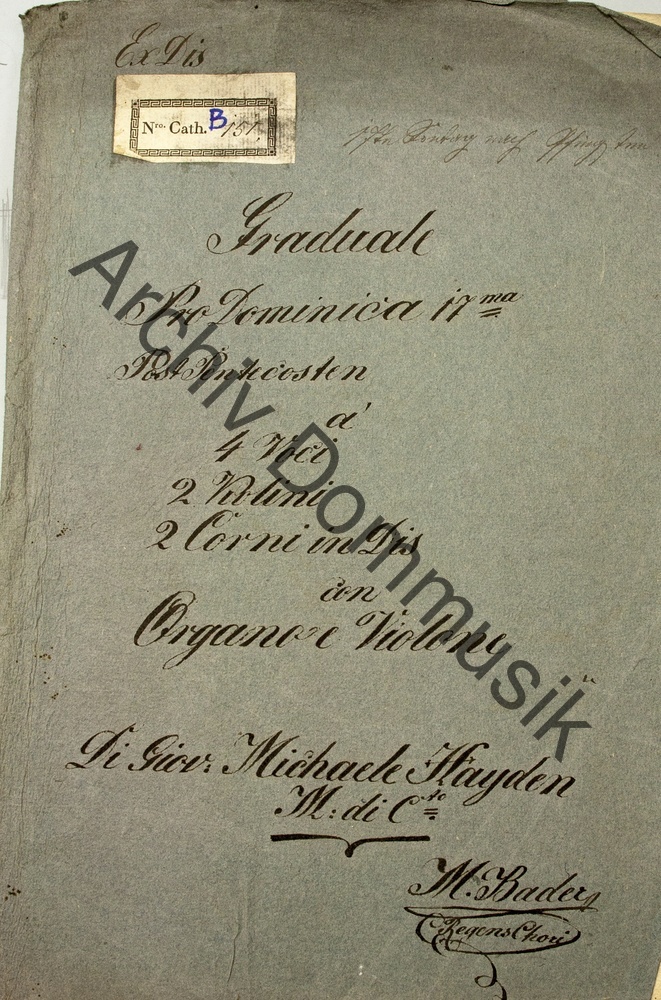 Ex Dis
Nro. Cath. B 151.
17ten Sontag nach Pfingsten
Graduale
Pro Dominica 17ma
Post Pentecosten
a'
4 Voci
2 Violini
2 Corni in Dis
con
Organo e Violone
Di Giov: Michaele Hayden
M: di Cto
M. Bader
Regens Chori
Archiv Dommusik